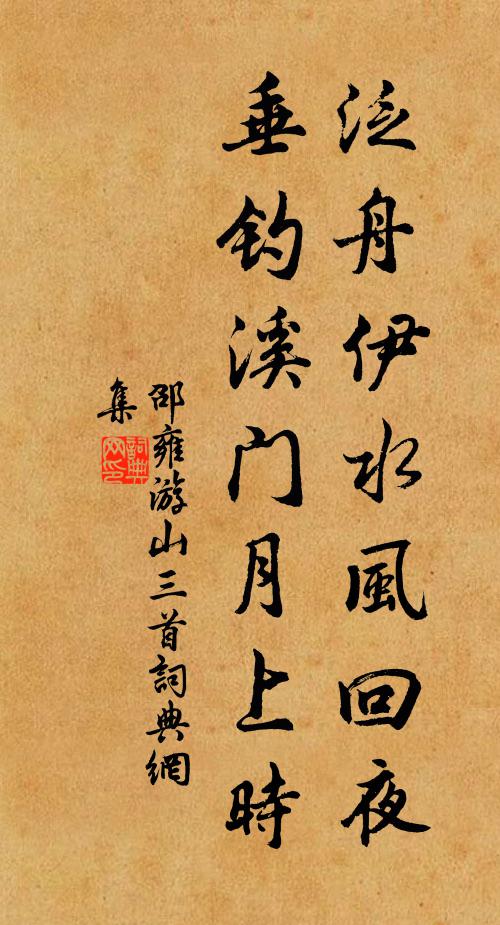 泛舟伊水風回夜
垂钓溪门月上時
邵雍游山三首詞典網
集
詞典網印